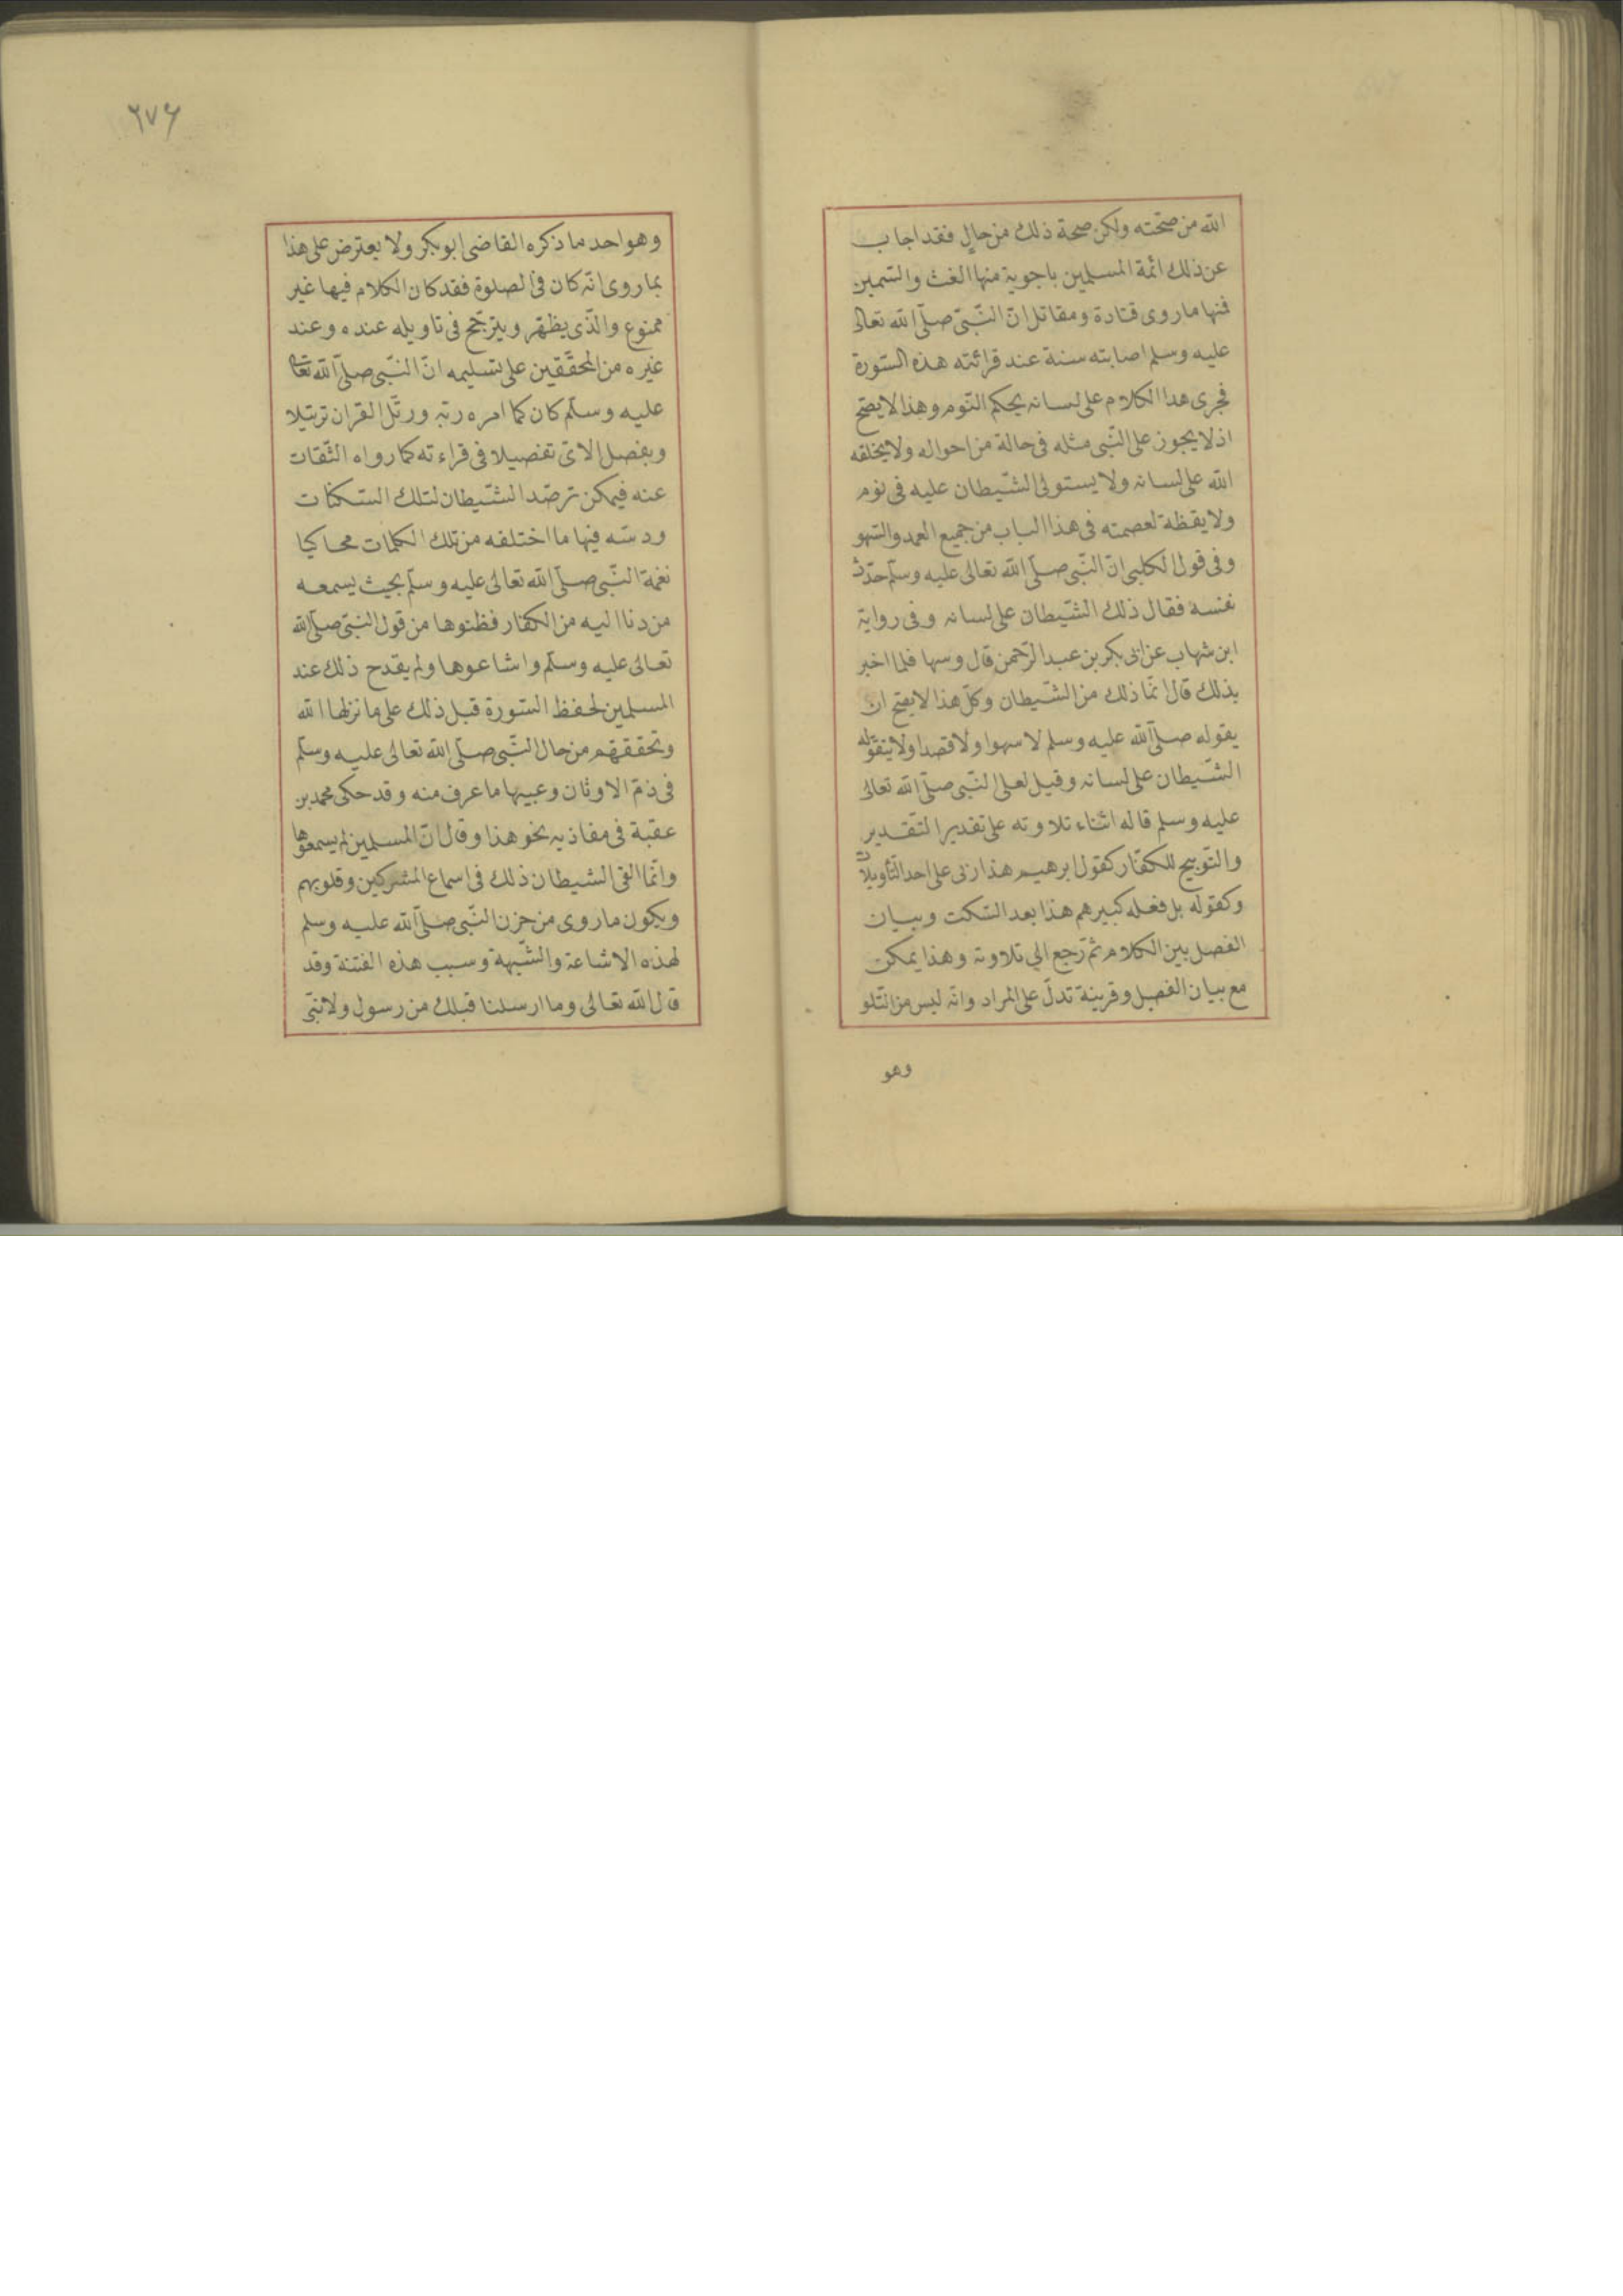 الله من صحته ولكن صحة ذلك من حال فقد اجاب
عن ذلك ائمة المسلمين باجوبة منها الغث والسّمين
فمنها ما روى قتادة ومقاتل انّ النّبىّ صلّى الله تعالى
عليه وسلم اصابته سنة عند قرائته هذه السّورة
فجرى هذا الكلام على لسانه بحكم النّوم وهذا لا يصّح
اذ لا يجوز على النّبى مثله فى حالة من احواله ولا يخلقه
الله على لسانه ولا يستولى الشّيطان عليه فى نوم
ولا يقظة لعصمته فى هذا الباب من جميع العمد والسّهو
وفى قول الكلبى انّ النّبى صلّى الله تعالى عليه وسلّم حدّث
نفسه فقال ذلك الشّيطان على لسانه وفى رواية
ابن شهاب عن ابى بكر بن عبد الرّحمن قال وسها فلما اخبر
بذلك قال انّما ذلك من الشّيطان وكلّ هذا لا يصّح ان
يقوله صلّى الله عليه وسلم لا سهوا ولا قصدا ولا يتقوّله
الشّيطان على لسانه وقيل لعلى النّبى صلّى الله تعالى
عليه وسلم قاله اثناء تلاوته على تقدير التّقدير
والتّوبيخ للكفّار كقول ابرهيم هذا ربى على احد التّأويلات
وكقوله بل فعله كبيرهم هذا بعد السّكت وبيان
الفصل بين الكلام ثمّ رجع الى تلاوته وهذا يمكن
مع بيان الفصل وقرينة تدلّ على المراد وانّه ليس من المتّلو
وهو
٦٧٦
وهو احد ما ذكره القاضى ابو بكر ولا يعترض على هذا
بما روى انّه كان فى الصلوة فقد كان الكلام فيها غير
ممنوع والّذى يظهر ويترجّح فى تاويله عنده وعند
غيره من المحقّقين على تسليمه انّ النّبى صلّى الله تعالى
عليه وسلّم كان كما امره ربّه ورتّل القران ترتيلا
ويفصل الاىّ تفصيلا فى قراءته كما رواه الثّقات
عنه فيمكن ترصّد الشّيطان لتلك السّكنات
ودسّه فيها ما اختلقه من تلك الكلمات محاكيا
نغمة النّبى صلّى الله تعالى عليه وسلّم بحيث يسمعه
من دنا اليه من الكفار فظنوها من قول النبىّ صلّى الله
تعالى عليه وسلّم واشاعوها ولم يقدح ذلك عند
المسلمين لحفظ السّورة قبل ذلك على ما نزلها الله
وتحققهم من حال النّبى صلّى الله تعالى عليه وسلّم
فى ذمّ الاوثان وعيبها ما عرف منه وقد حكى محمد بن
عقبة فى مغازيه نحو هذا وقال انّ المسلمين لم يسمعوها
وانّما القى الشيطان ذلك فى اسماع المشركين وقلوبهم
ويكون ما روى من حزن النّبى صلّى الله عليه وسلم
لهذه الاشاعة والشّبهة وسبب هذه الفتنة وقد
قال الله تعالى وما ارسلنا قبلك من رسول ولا نبّى